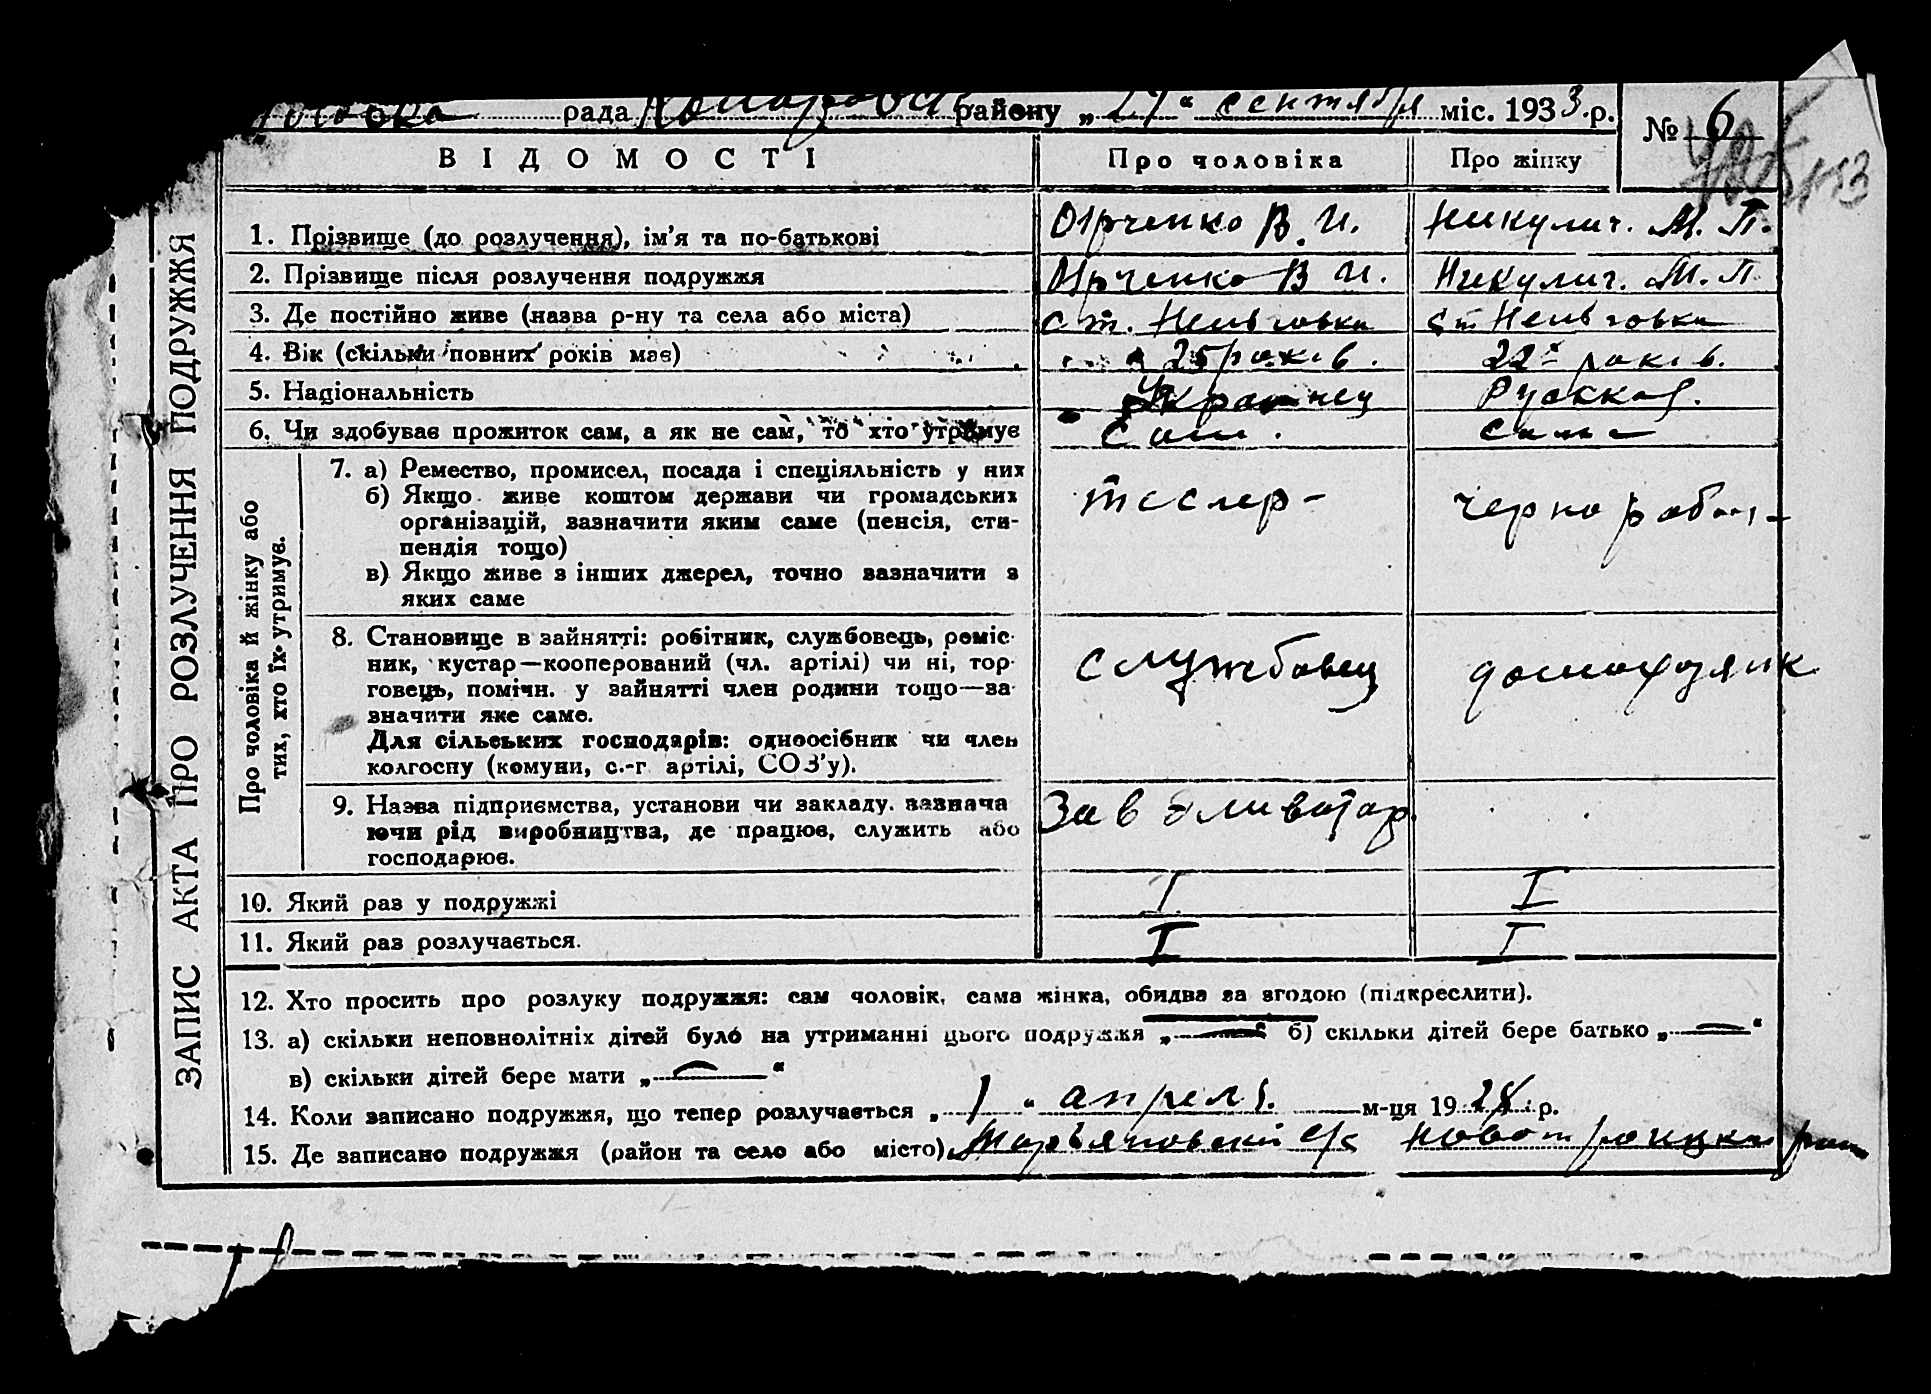 рада районy „27“ сентября міс. 1933.р.
№ 6
ВІДОМОСТІ Про чоловіка Про жінку
1. Прізвище (до розлучення), ім’я та по-батькові В. И. Никулич. М. П.
2. Прізвище після розлучення подружжя В И. Никулич. М. П.
3. Де постійно живе (назва р-ну та села або міста) ст. ст
4. Вік (скільки повних років має) 25 років. 22 років.
5. Національність Украинец Русская.
6. Чи здобуває прожиток сам, а як не сам, то хто утримує Сам. сама
ЗАПИС АКТА ПРО РОЗЛУЧЕННЯ ПОДРУЖЖЯ
Про чоловіка й жінку або
тих, хто їх утримує.
7. а) Ремество, промисел, посада і спеціяльність у них тесляр- чернороб
б) Якщо живе коштом держави чи громадських
організацій, зазначити яким саме (пенсія, сти-
пендія тощо)
в) Якщо живе з інших джерел, точно зазначити з
яких саме
8. Становище в зайнятті: робітник, службовець, реміс- службовец домохозяик
ник, кустар—кооперований (чл. артілі) чи ні, тор-
говець, помічн. у зайнятті член родини тощо—за-
значити яке саме.
Для сільських господарів: одноосібник чи член
колгоспу (комуни, с.-г артілі, СОЗ’у).
9. Назва підприємства, установи чи закладу. зазнача Зав
ючи рід виробництва, де працює, служить або
господарює.
10. Який раз у подружжі I I
11. Який раз розлучається. I I
12. Хто просить про розлуку подружжя: сам чоловік, сама жінка, обидва за згодою (підкреслити).
13. а) скільки неповнолітніх дітей було на утриманні цього подружжя „—“ б) скільки дітей бере батько „—“
в) скільки дітей бере мати „—“
14. Коли записано подружжя, що тепер розлучається „1“ апреля м-ця 1928 р.
15. Де записано подружжя (район та село або місто) с/с Новотроицки